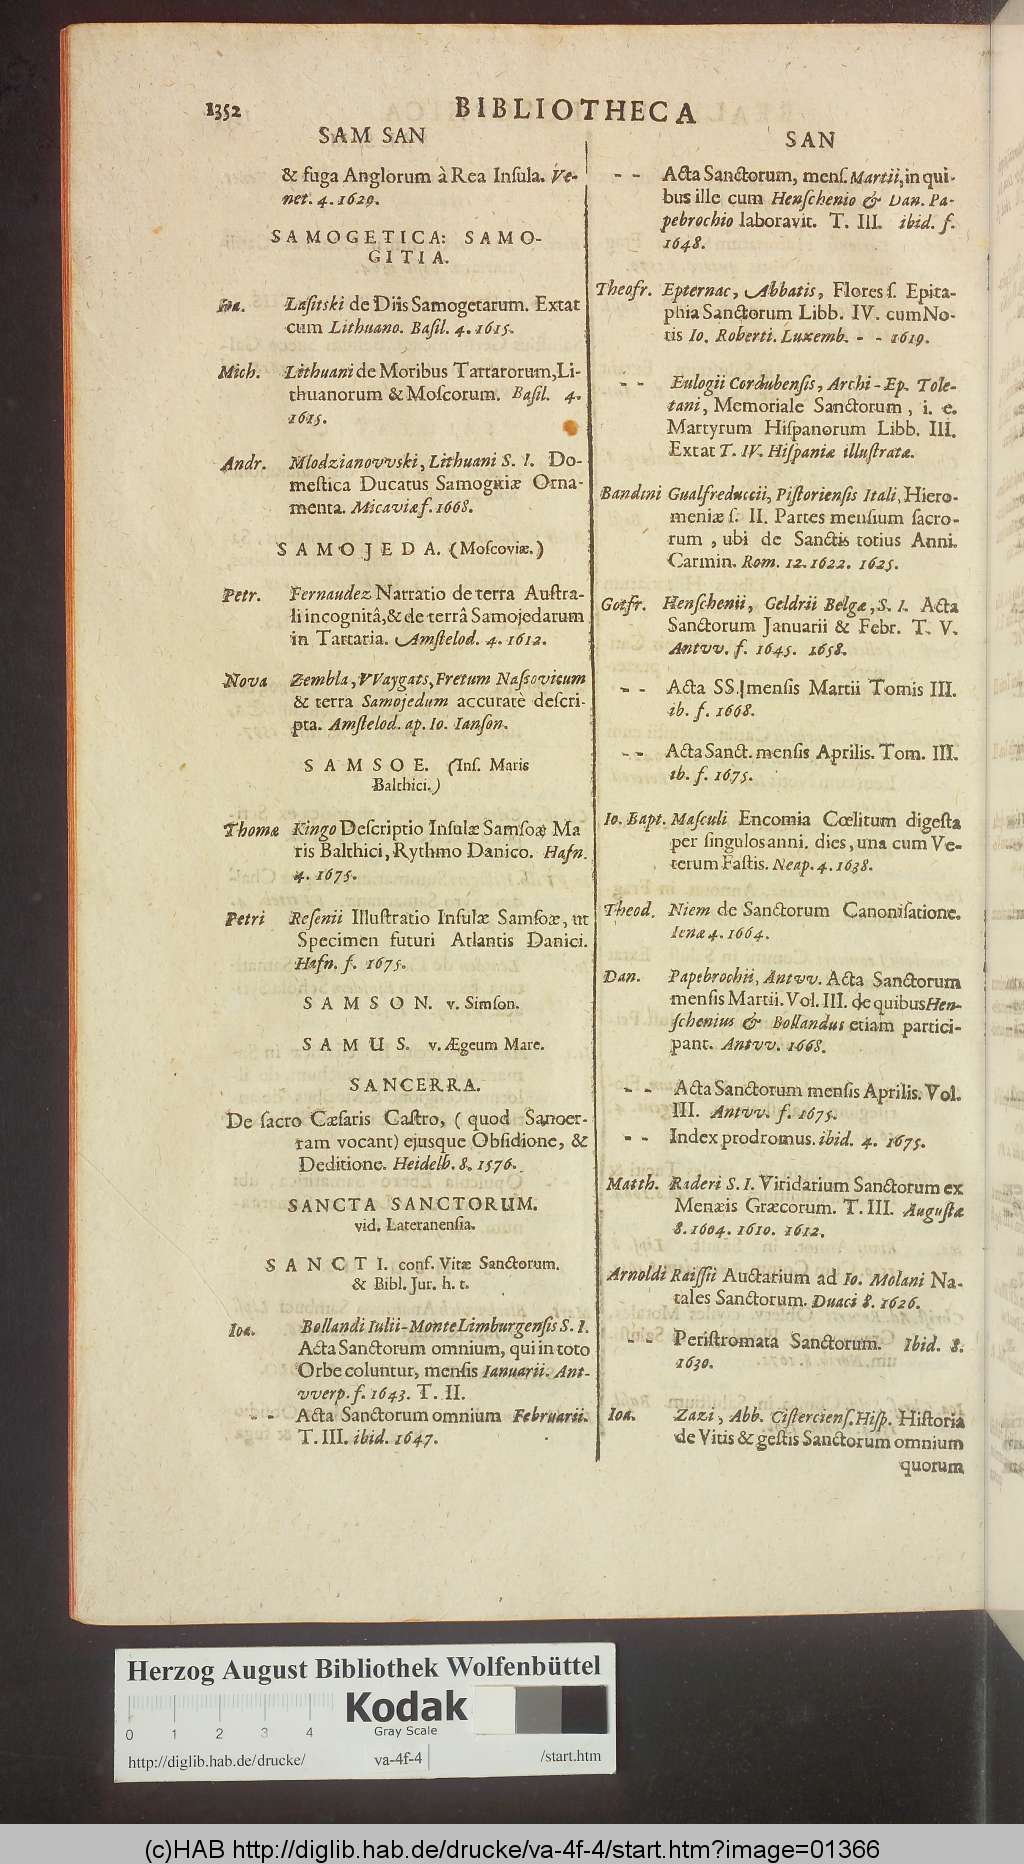 1352
BIBLIOTHECA
SAM SAN
& fuga Anglorum à Rea Inſula. Ve-
net. 4. 1629.
SAMOGETICA: SAMO-
GITIA.
Ioa. Laſitski de Diis Samogetarum. Extat
cum Lithuano. Baſil. 4. 1615.
Mich. Lithuani de Moribus Tartarorum, Li-
thuanorum & Moſcorum. Baſil. 4.
1615.
Andr. Mlodzianovvski, Lithuani S. I. Do-
meſtica Ducatus Samogitiæ Orna-
menta. Micaviæ f. 1668.
SAMOJEDA. (Moſcoviæ.)
Petr. Fernaudez Narratio de terra Auſtra-
li incognitâ, & de terrâ Samojedarum
in Tartaria. Amſtelod. 4. 1612.
Nova Zembla, VVaygats, Fretum Naſſovicum
& terra Samojedum accuratè deſcri-
pta. Amſtelod. ap. Io. Ianſon.
SAMSOE. (Inſ. Maris
Balthici.)
Thomæ Kingo Deſcriptio Inſulæ Samſoæ Ma
ris Balthici, Rythmo Danico. Hafn.
4. 1675.
Petri Reſenii Illuſtratio Inſulæ Samſoæ, ut
Specimen futuri Atlantis Danici.
Hafn. f. 1675.
SAMSON. v. Simſon.
SAMUS. v. Ægeum Mare.
SANCERRA.
De ſacro Cæſaris Caſtro, (quod Sancer-
ram vocant) ejusque Obſidione, &
Deditione. Heidelb. 8. 1576.
SANCTA SANCTORUM.
vid. Lateranenſia.
SANCTI. conf. Vitæ Sanctorum.
& Bibl. Jur. h. t.
Ioa. Bollandi Iulii-Monte Limburgenſis S. I.
Acta Sanctorum omnium, qui in toto
Orbe coluntur, menſis Ianuarii. Ant-
vverp. f. 1643. T. II.
- - Acta Sanctorum omnium Februarii.
T. III. ibid. 1647.
SAN
- - Acta Sanctorum, menſ. Martii, in qui-
bus ille cum Henſchenio & Dan. Pa-
pebrochio laboravit. T. III. ibid. f.
1648.
Theofr. Epternac, Abbatis, Flores ſ. Epita-
phia Sanctorum Libb. IV. cum No-
tis Io. Roberti. Luxemb. - - 1619.
- - Eulogii Cordubenſis, Archi-Ep. Tole-
tani, Memoriale Sanctorum, i. e.
Martyrum Hiſpanorum Libb. III.
Extat T. IV. Hiſpaniæ illuſtratæ.
Bandini Gualfreduccii, Piſtorienſis Itali, Hiero-
meniæ ſ. II. Partes menſium ſacro-
rum, ubi de Sanctis totius Anni.
Carmin. Rom. 12. 1622. 1625.
Gotfr. Henſchenii, Geldrii Belgæ, S. I. Acta
Sanctorum Januarii & Febr. T. V.
Antvv. f. 1645. 1658.
- - Acta SS. menſis Martii Tomis III.
ib. f. 1668.
- - Acta Sanct. menſis Aprilis. Tom. III.
ib. f. 1675.
Io. Bapt. Maſculi Encomia Cœlitum digeſta
per ſingulos anni. dies, una cum Ve-
terum Faſtis. Neap. 4. 1638.
Theod. Niem de Sanctorum Canoniſatione.
Ienæ 4. 1664.
Dan. Papebrochii, Antvv. Acta Sanctorum
menſis Martii. Vol. III. de quibus Hen-
ſchenius & Bollandus etiam partici-
pant. Antvv. 1668.
- - Acta Sanctorum menſis Aprilis. Vol.
III. Antvv. f. 1675.
- - Index prodromus. ibid. 4. 1675.
Matth. Raderi S. I. Viridarium Sanctorum ex
Menæis Græcorum. T. III. Auguſtæ
8. 1604. 1610. 1612.
Arnoldi Raiſſii Auctarium ad Io. Molani Na-
tales Sanctorum. Duaci 8. 1626.
- - Periſtromata Sanctorum. Ibid. 8.
1630.
Ioa. Zazi, Abb. Ciſtercienſ. Hiſp. Hiſtoria
de Vitis & geſtis Sanctorum omnium
quorum
Herzog August Bibliothek Wolfenbüttel
0 1 2 3 4
Kodak
Gray Scale
http://diglib.hab.de/drucke/ va-4f-4 /start.htm
(c)HAB http://diglib.hab.de/drucke/va-4f-4/start.htm?image=01366